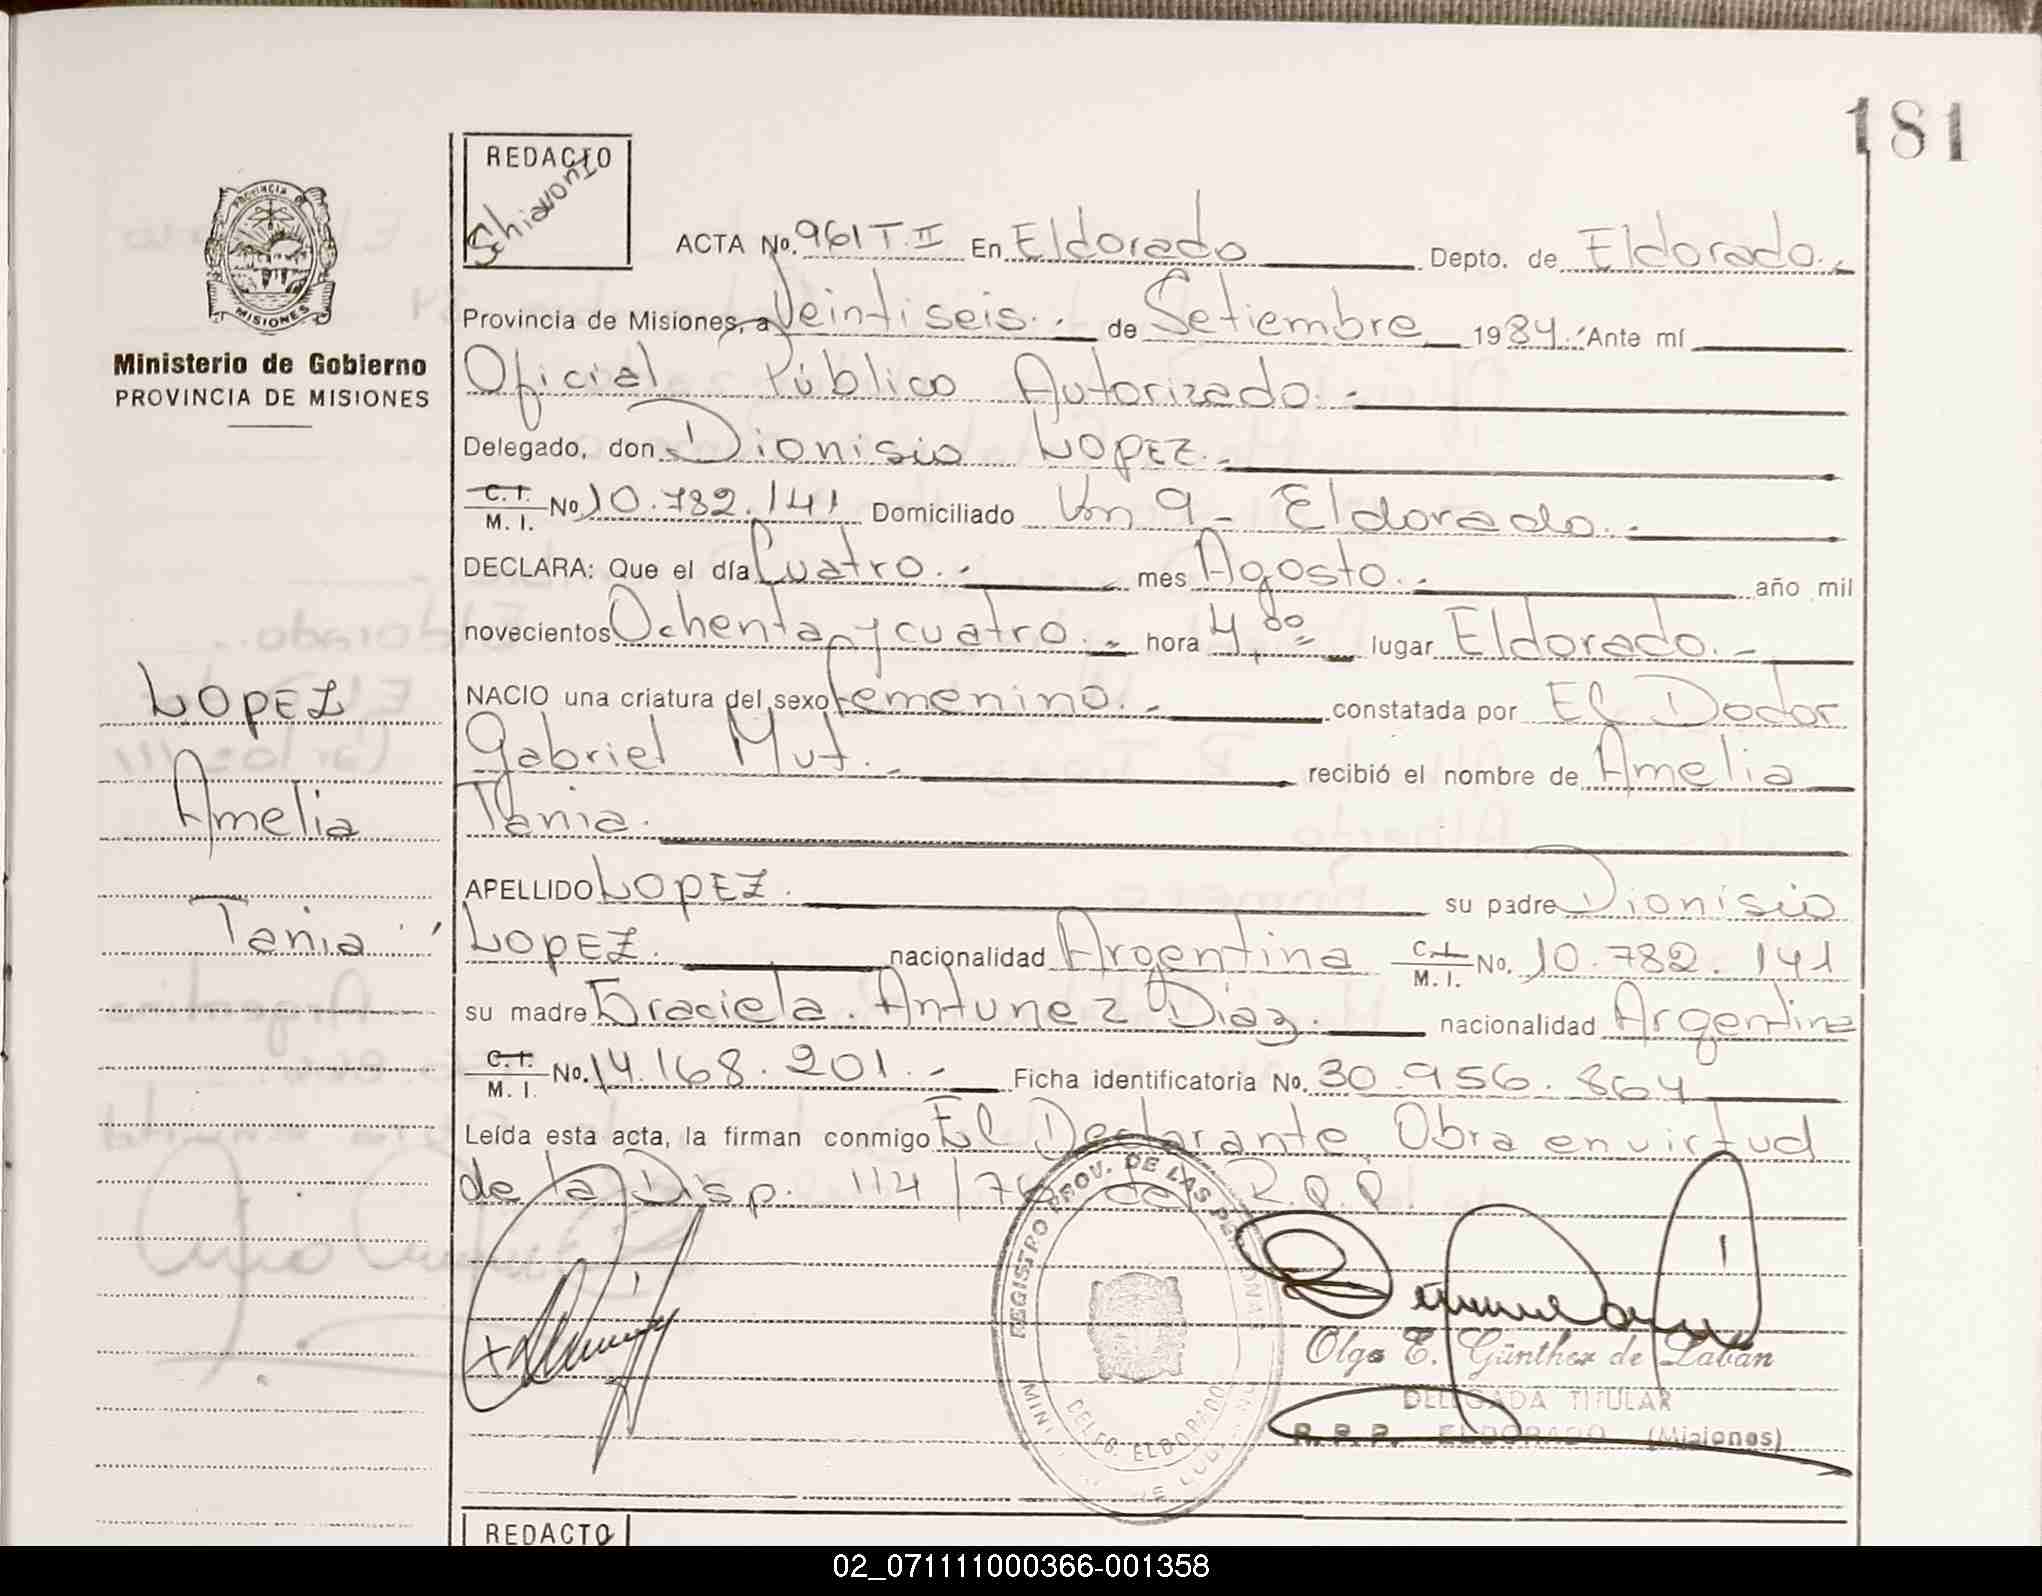 181
REDACTO
Schiavoni
PROVINCIA DE
MISIONES
Ministerio de Gobierno
PROVINCIA DE MISIONES
ACTA No. 961 T. II En Eldorado Depto. de Eldorado.-
Provincia de Misiones, a Veintiseis.- de Setiembre 1984.- Ante mí
Oficial Público Autorizado.-
Delegado, don Dionisio LOPEZ.-
C. I.
M. I. No 10.782.141 Domiciliado Km 9 - Eldorado.-
DECLARA: Que el día Cuatro.- mes Agosto.- año mil
novecientos Ochenta y cuatro.- hora 4, lugar Eldorado.-
NACIO una criatura del sexo femenino.- constatada por El Doctor
Gabriel Mut.- recibió el nombre de Amelia
Tania.
LOPEZ
Amelia
Tania
APELLIDO LOPEZ. su padre Dionisio
LOPEZ. nacionalidad Argentina C. I.
M. I. No. 10.782.141
su madre Graciela Antunez Diaz. nacionalidad Argentina
C. I.
M. I. No. 14.168.201.- Ficha identificatoria No. 30.956.864
Leída esta acta, la firman conmigo El Declarante. Obra en virtud
de la Disp. 114/76 del R.P.P.
REGISTRO PROV. DE LAS PERSONAS
DELEG. ELDORADO
Olga E. Günther de Laban
DELEGADA TITULAR
R.P.P. ELDORADO (Misiones)
REDACTO
02_071111000366-001358